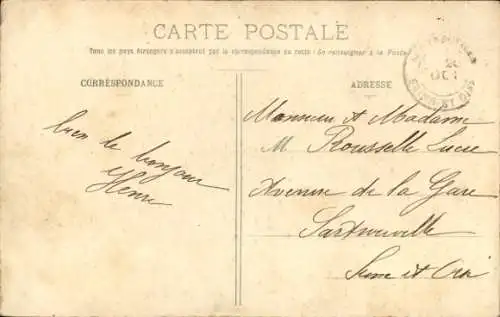 CARTE POSTALE
Tous les pays étrangers n'acceptent pas la correspondance au recto (Se renseigner à la Poste)
CORRESPONDANCE
ADRESSE
bien le bonjour
Henri
Monsieur et Madame
M Rousselle Lucie
Avenue de la Gare
Sartrouville
Seine et Oise